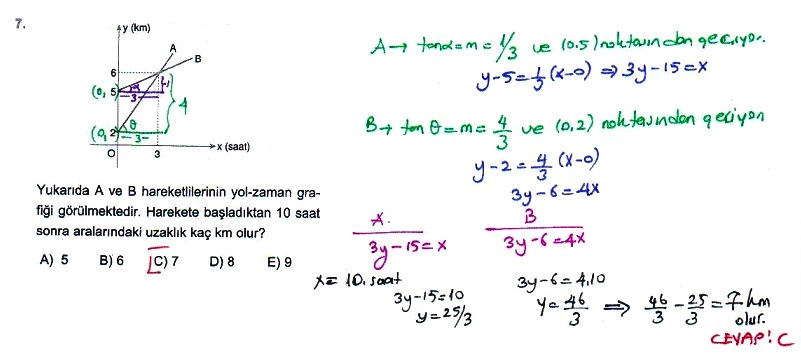 7.
y (km)
A
B
6
(0, 5)
α
3
1
4
(0, 2)
θ
3
O
3
x (saat)
Yukarıda A ve B hareketlilerinin yol-zaman gra-
fiği görülmektedir. Harekete başladıktan 10 saat
sonra aralarındaki uzaklık kaç km olur?
A) 5 B) 6 C) 7 D) 8 E) 9
A → tanα = m = 1/3 ve (0.5) noktasından geçiyor.
y-5 = 1/3 (x-0) ⇒ 3y-15 = x
B → tan θ = m = 4/3 ve (0,2) noktasından geçiyor
y-2 = 4/3 (x-0)
3y-6 = 4x
A. B
3y-15 = x 3y-6 = 4x
x = 10. saat
3y-15 = 10 3y-6 = 4.10
y = 25/3 y = 46/3 ⇒ 46/3 - 25/3 = 7 km
olur.
CEVAP! C